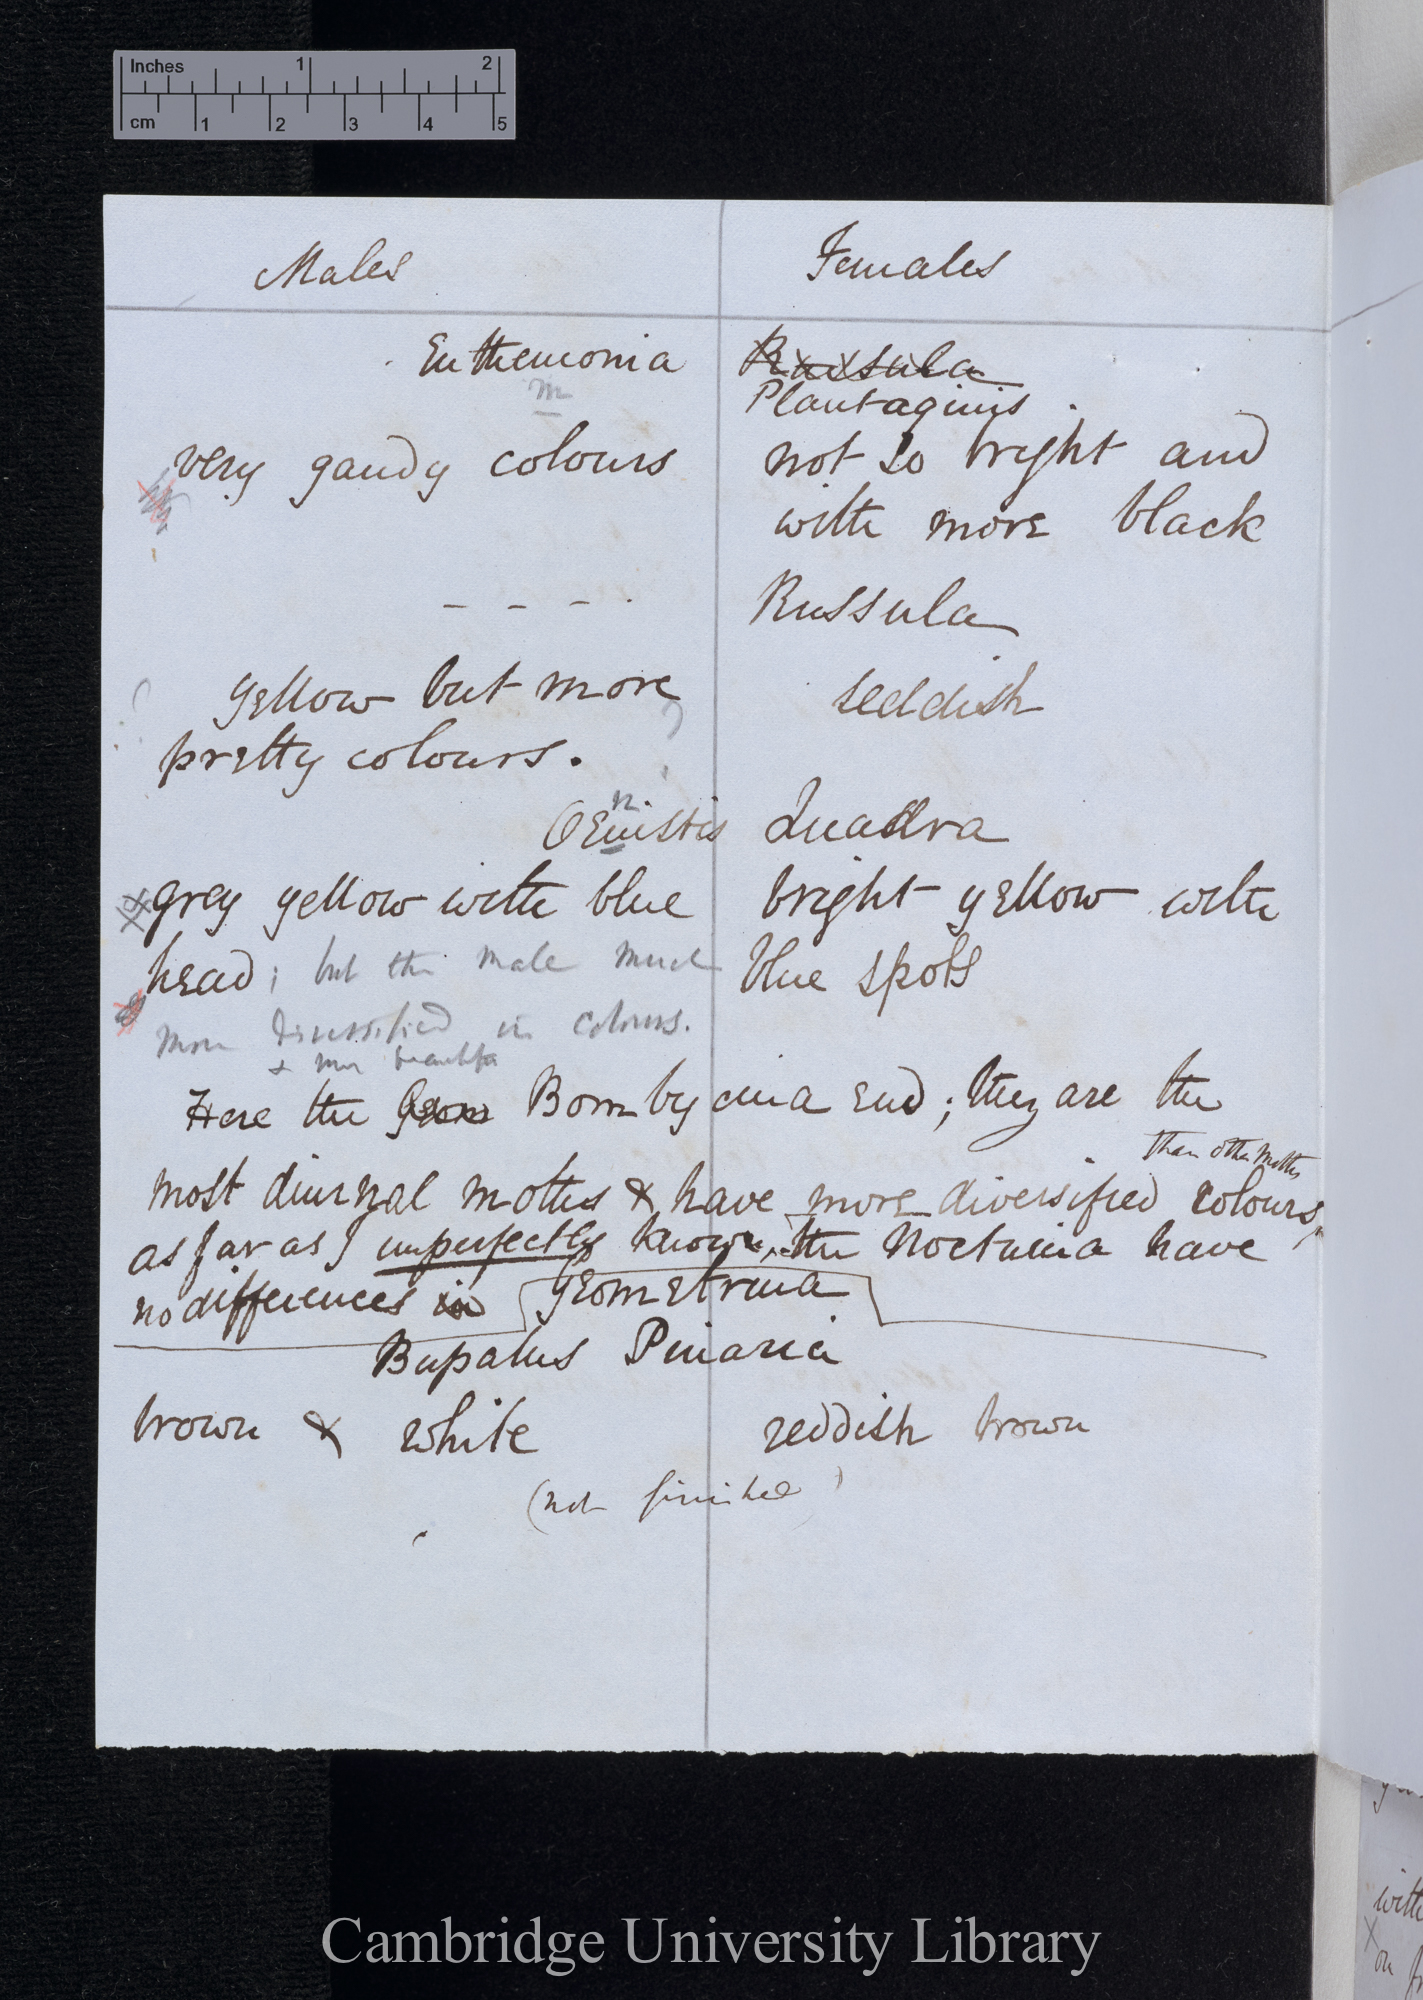 Inches 1 2
cm 1 2 3 4 5
Males Females
Euthemonia Russula
m Plantaginis.
very gaudy colours not so bright and
with more black
- - - . Russula
yellow but more reddish
pretty colours.
n
OEnistis Quadra
grey yellow with blue bright yellow with
head; but the male much blue spots
more diversified in colours.
& more beautiful
Here the Geom Bombycina end; they are the
than other moths
most diurnal moths & have more diversified colours,
as far as I imperfectly know, the Noctuina have
no differences in Geometrina
Bupalus Piniaria
brown & white reddish brown
(not finished)
with
on
Cambridge University Library